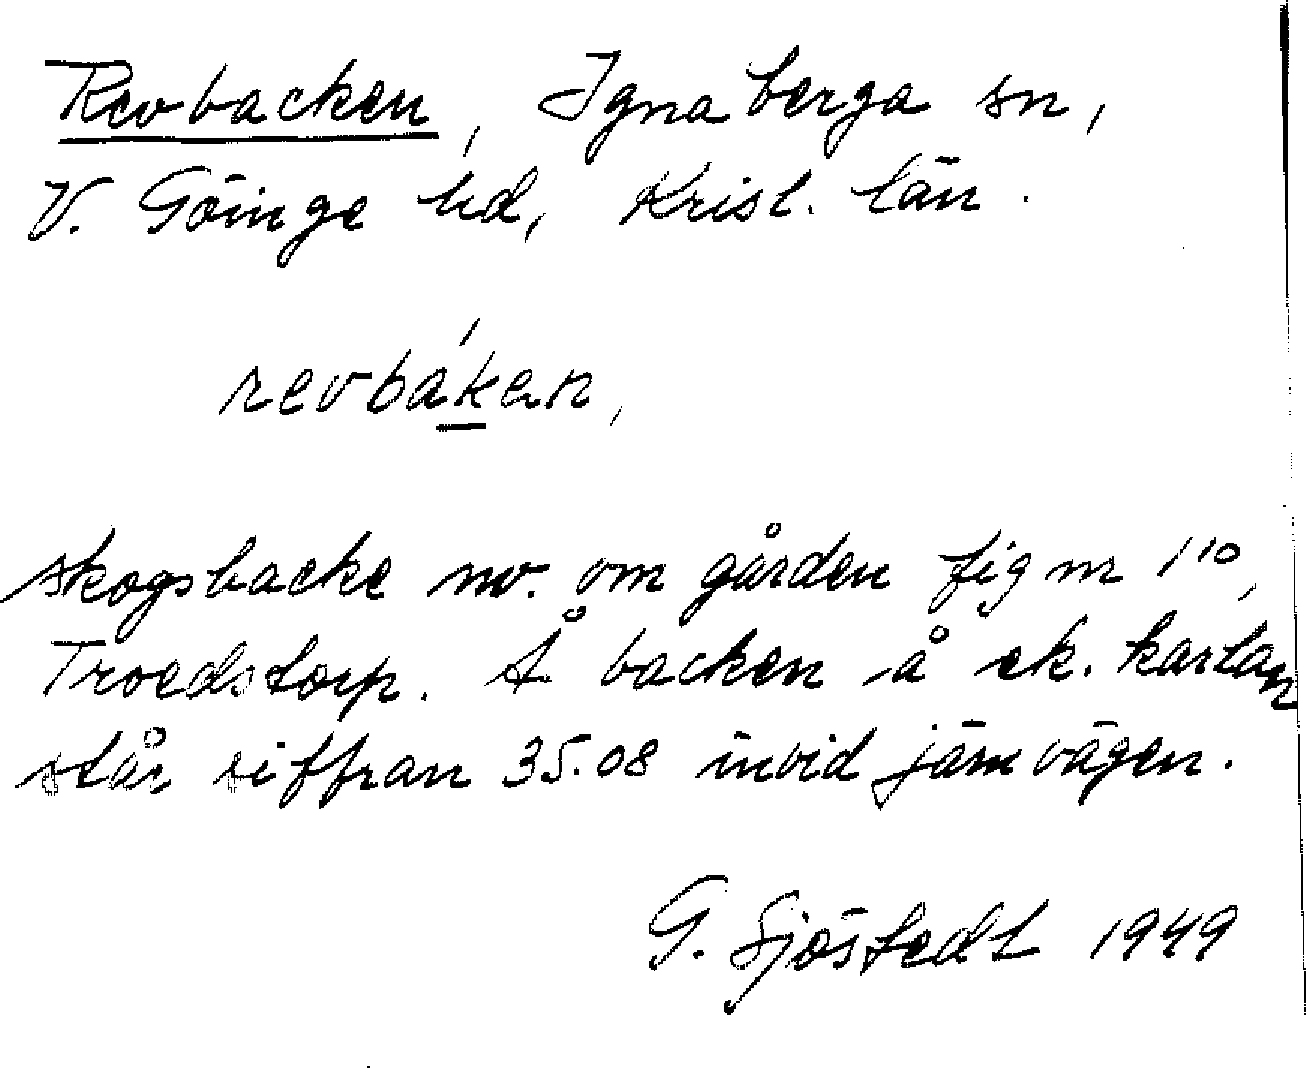 Revbacken, Ignaberga sn,
V. Göinge hd, Krist. län.
revbákan,
skogsbacke nv. om gården fig nr 1¹⁰,
Troedstorp. Å backen å ek. kartan
står siffran 35.08 invid järnvägen.
G. Sjöstedt 1949